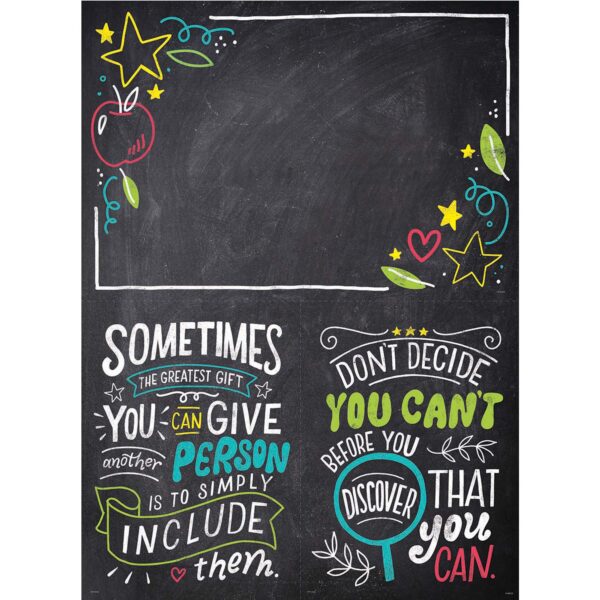 SOMETIMES
THE GREATEST GIFT
YOU CAN GIVE
another PERSON
IS TO SIMPLY
INCLUDE
them.
DON'T DECIDE
YOU CAN'T
BEFORE YOU
DISCOVER THAT
you
CAN.